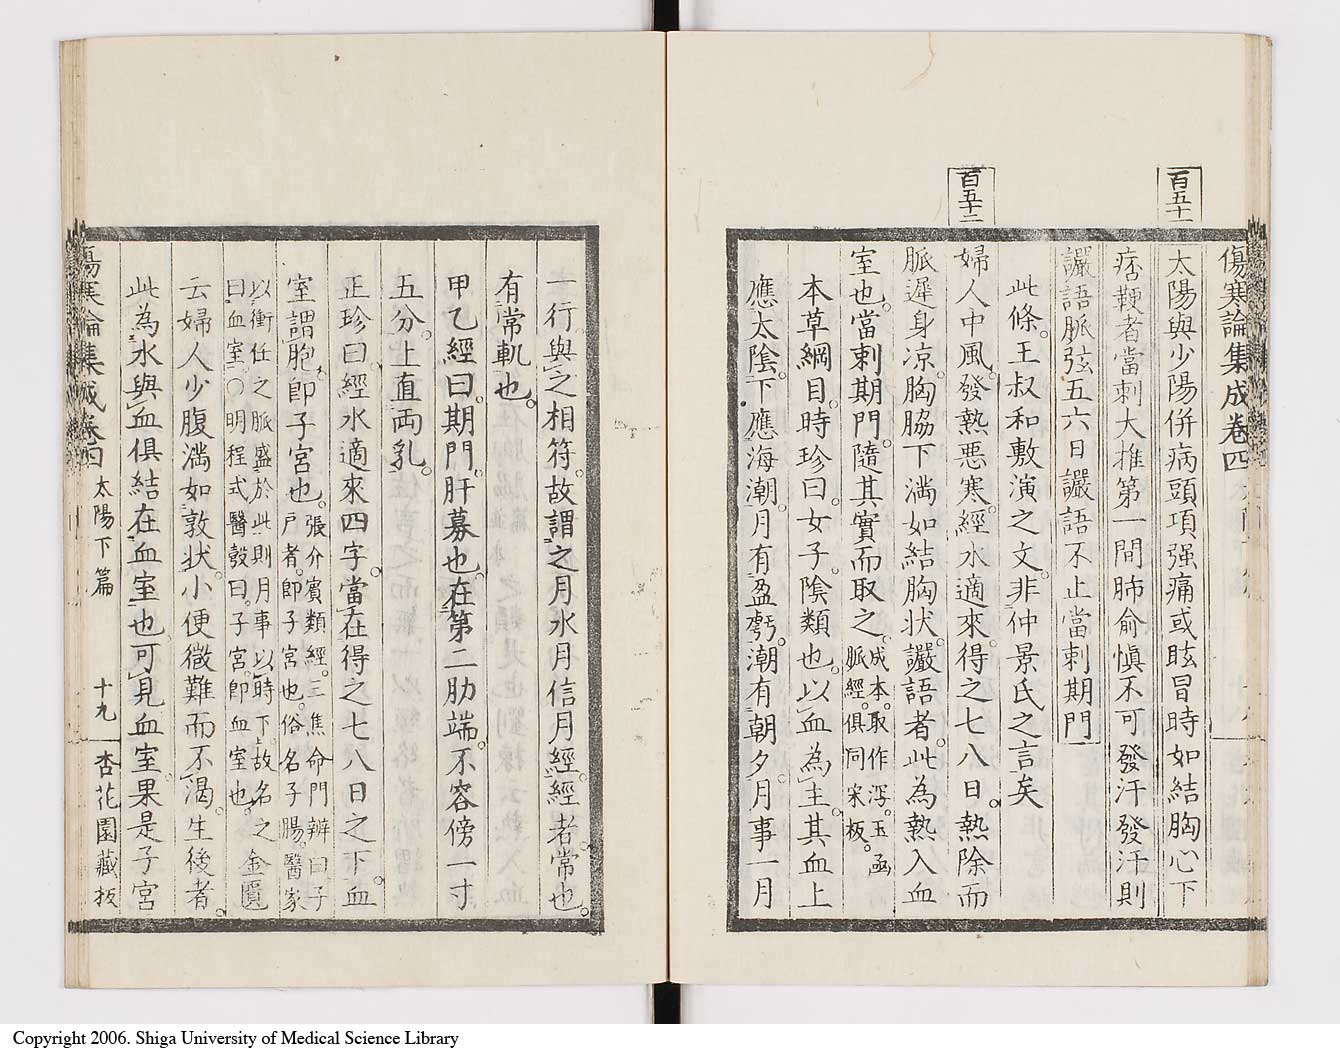 傷寒論集成卷四
百五十一
太陽與少陽併病頭項强痛或眩冒時如結胸心下
痞鞕者當刺大推第一間肺俞愼不可發汗發汗則
讝語脈弦五六日讝語不止當刺期門
此條。王叔和敷演之文。非仲景氏之言矣
百五十二
婦人中風。發熱惡寒。經水適來。得之七八日。熱除而
脈遲身凉。胸脇下滿。如結胸狀。讝語者。此為熱入血
室也。當刺期門。隨其實而取之。成本。取作瀉。玉函
脈經。俱同宋板。
本草綱目。時珍曰。女子。陰類也。以血為主。其血上
應太陰。下應海潮。月有盈虧。潮有朝夕。月事一月
一行。與之相符。故謂之月水月信月經。經者。常也。
有常軌也。
甲乙經曰。期門。肝募也。在第二肋端。不容傍一寸
五分。上直兩乳。
正珍曰。經水適來四字。當在得之七八日之下。血
室謂胞。卽子宮也。張介賓類經。三焦命門辨曰子
戶者。卽子宮也。俗名子腸。醫家
以衝任之脈盛於此則月事以時下故名之
曰血室。○明程式醫彀曰。子宮。卽血室也。金匱
云婦人少腹滿如敦狀。小便微難而不渴。生後者。
此為水與血俱結在血室也。可見血室果是子宮
傷寒論集成卷四 太陽下篇 十九 杏花園藏板
Copyright 2006. Shiga University of Medical Science Library